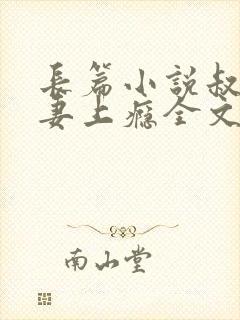 長篇小說叔
妻上癮全文
南山堂